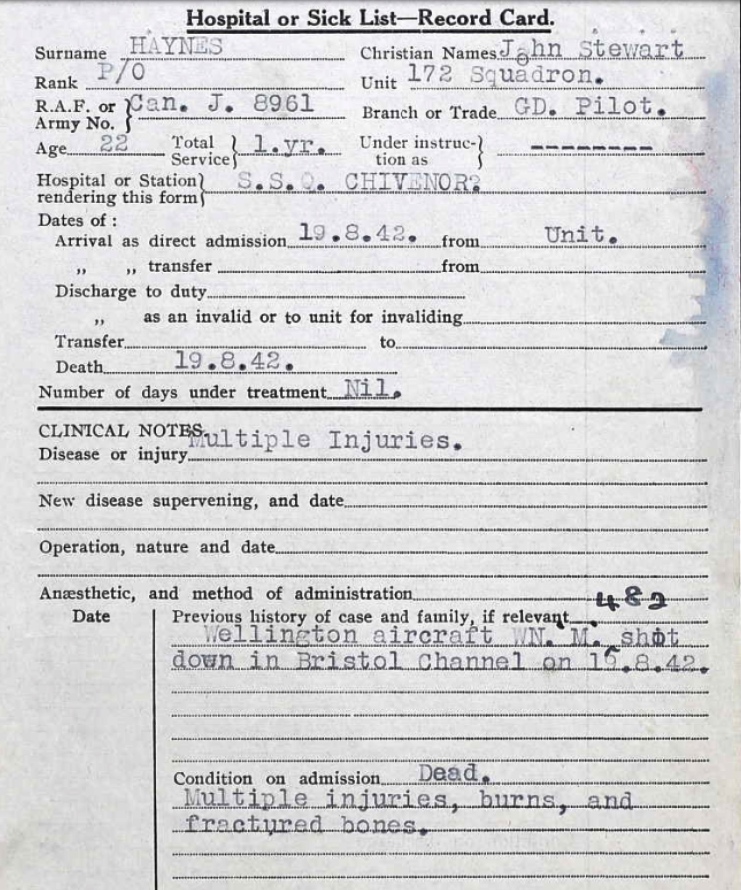 Hospital or Sick List—Record Card.
Surname HAYNES Christian Names John Stewart
Rank P/O Unit 172 Squadron.
R.A.F. or Army No. } Can. J. 8961 Branch or Trade GD. Pilot.
Age 22 Total Service } 1.yr. Under instruction as } --------
Hospital or Station rendering this form } S.S.Q. CHIVENOR?
Dates of :
Arrival as direct admission 19.8.42. from Unit.
„ „ transfer from
Discharge to duty
„ as an invalid or to unit for invaliding
Transfer to
Death 19.8.42.
Number of days under treatment Nil.
CLINICAL NOTES
Disease or injury Multiple Injuries.
New disease supervening, and date
Operation, nature and date
Anæsthetic, and method of administration
482
Date Previous history of case and family, if relevant
Wellington aircraft WN. M. shot
down in Bristol Channel on 19.8.42.
Condition on admission Dead.
Multiple injuries, burns, and
fractured bones.